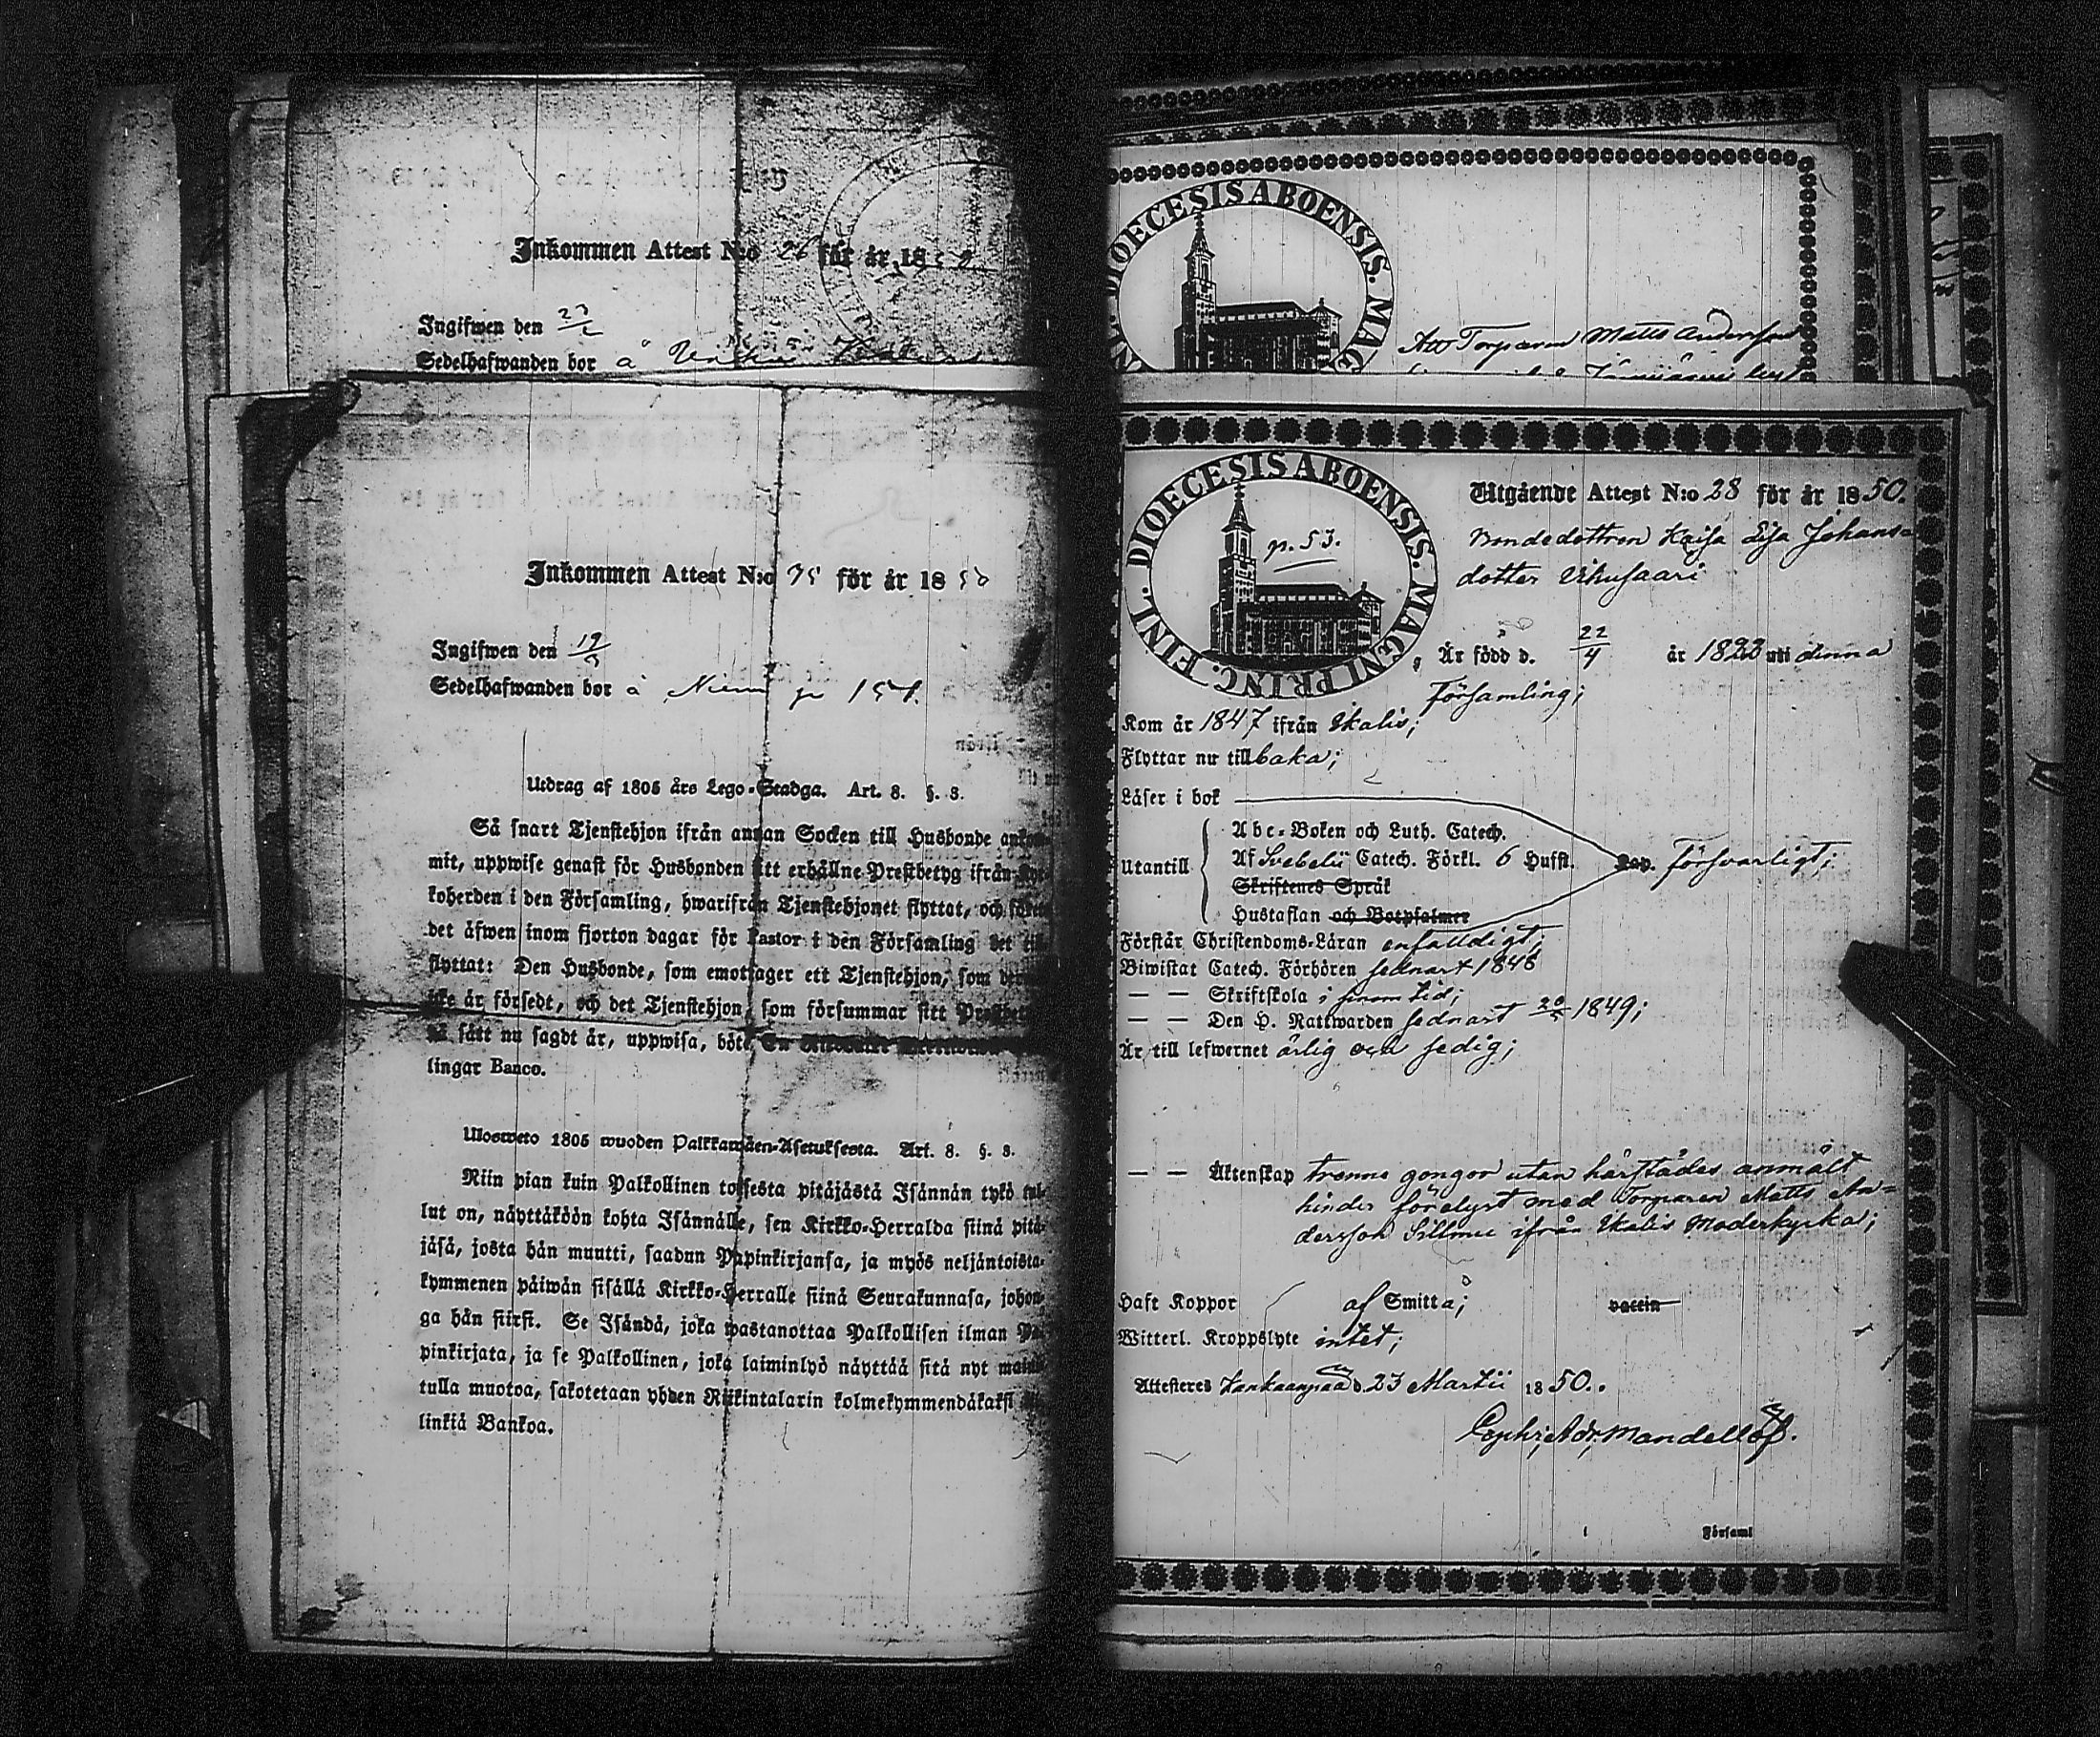 Inkommen Attest N:o 26 för år 1850
Ingifwen den
Sedelhafwanden bor å
Inkommen Attest N:o 35 för år 1850
Ingifwen den 19/
Sedelhafwanden bor å Niemi p 151.
Utdrag af 1805 års Lego-Stadga. Art. 8. §. 8.
Så snart Tjenstehjon ifrån annan Socken till Husbonde ankom-
mit, uppwise genast för Husbonden sitt erhållne Prestbetyg ifrån Kyr-
koherden i den Församling, hwarifrån Tjenstehjonet flyttat, och förete
det äfwen inom fjorton dagar för Pastor i den Församling det till
flyttat: Den Husbonde, som emottager ett Tjenstehjon, som der
icke är försedt, och det Tjenstehjon, som försummar sitt Prestbet
på sått nu sagdt är, uppwisa, böte En
lingar Banco.
Ulosweto 1805 wuoden Palkkawäen-Asetuksesta. Art. 8. §. 8.
Niin pian kuin Palkollinen toisesta pitäjästä Isännän tykö tul-
lut on, näyttäköön kohta Isännälle, sen Kirkko-Herralda siinä pitä-
jäsä, josta hän muutti, saadun Papinkirjansa, ja myös neljäntoista-
kymmenen päiwän sisällä Kirkko-Herralle siinä Seurakunnasa, johon-
ga hän siirsi. Se Isändä, joka wastanottaa Palkollisen ilman Pa-
pinkirjata, ja se Palkollinen, joka laiminlyö näyttää sitä nyt maini-
tulla muotoa, sakotetaan yhden Riikintalarin kolmekymmendäkaksi
linkiä Bankoa.
DIOECESIS ABOENSIS. MAG
Att Torparen Matts Andersson
DIOECESIS ABOENSIS. MAGNI PRINC. FINL.
p. 53.
Utgående Attest N:o 28 för år 1850.
Bondedottren Kaisa Lisa Johans-
dotter Uhusaari
Är född d. 22/4 år 1822 uti denna
Församling;
Kom år 1847 ifrån Ikalis;
Flyttar nu tillbaka;
Läser i bok
Utantill
Abc-Boken och Luth. Catech.
Af Svebelii Catech. Förkl. 6 Hufst.
Skriftenes Språk
Hustaflan och Botpsalmer
Cap. försvarligt;
Förstår Christendoms-Läran enfalldigt;
Biwistat Catech. Förhören sednast 1848
— — Skriftskola i sinom tid;
— — Den H. Nattwarden sednast 20/5 1849;
Är till lefwernet ärlig och sedig;
— — Äktenskap trenne gångor utan härstädes anmält
hinder förelyst med Torparen Matts An-
dersson Sillmu ifrån Ikalis Moderkyrka;
Haft Koppor af Smitta; vaccin
Witterl. Kroppslyte intet;
Attesteras Kankaanpää d. 23 Martii 1850.
Ephr. Adr. Mandellöf.
Församl